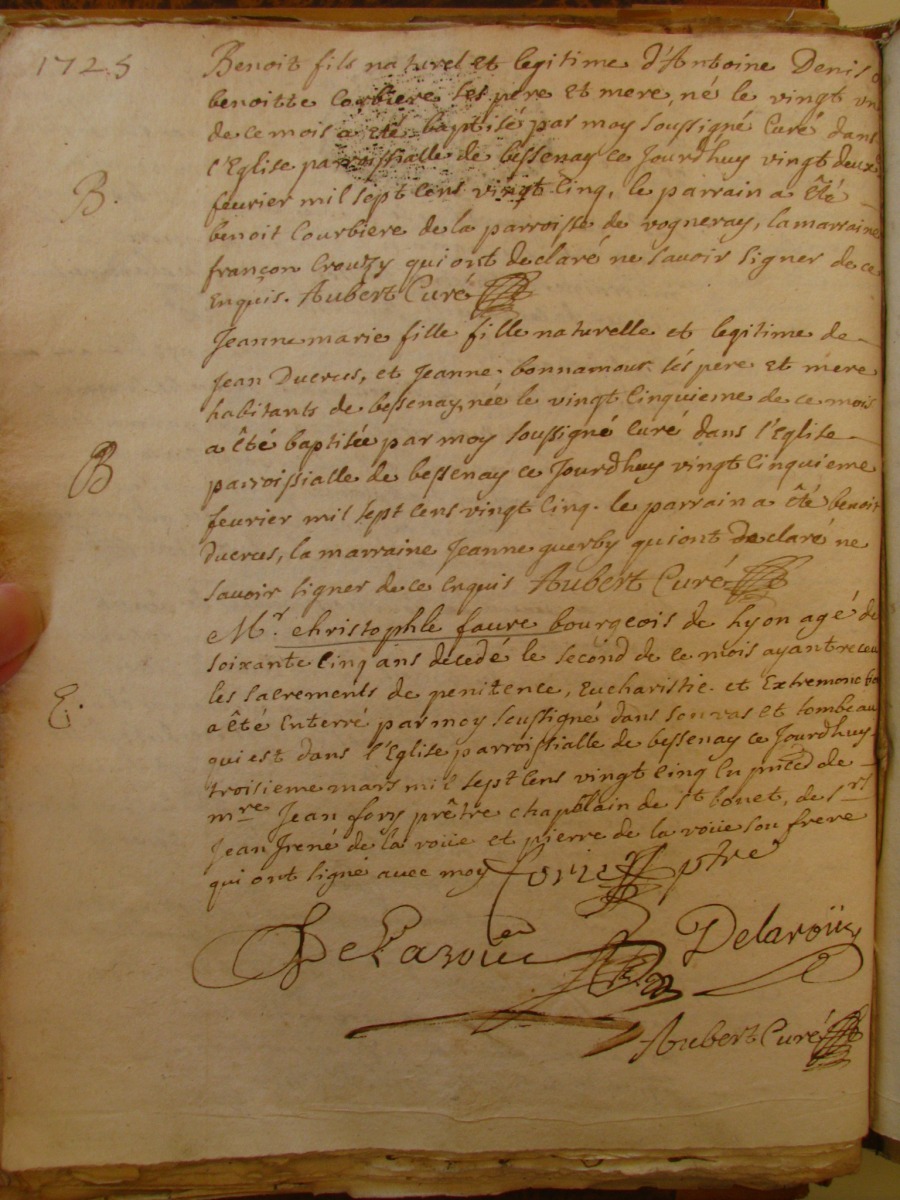 1725
Benoit fils naturel et legitime d'Antoine Denis
benoitte Corbiere ses pere et mere, né le vingt un
de ce mois a été baptisé par moy soussigné Curé dans
l'Eglise parroissialle de bessenay ce Jourdhuy vingt deux
B.
feurier mil sept cens vingt cinq, le parrain a êté
benoit Courbiere de la parroisse de vogneray, la marraine
françon Crouzy qui ont declaré ne savoir signer de ce
Enquis. Aubert Curé
Jeanne marie fille fille naturelle et legitime de
Jean Ducrus, et Jeanne bonnamour ses pere et mere
habitants de bessenay, née le vingt cinquieme de ce mois
a êté baptisée par moy soussigné Curé dans l'Eglise
B
parroissialle de bessenay ce Jourdhuy vingt cinquieme
feurier mil sept cens vingt cinq. le parrain a êté benoit
Ducrus, la marraine Jeanne guerby qui ont declaré ne
savoir signer de ce enquis Aubert Curé
Mr. christophle faure bourgeois de lyon agé de
soixante cinq ans decedé le second de ce mois ayant receu
les sacrements de penitence, Eucharistie et Extremonction
E.
a êté Enterré par moy soussigné dans son vas et tombeau
qui est dans l'Eglise parroissialle de bessenay ce Jourdhuy
troisieme mars mil sept cens vingt cinq En pnce de
mre Jean fory prêtre chapelain de st bonet, de srs
Jean frené de la roüe et pierre de la roüe son frere
qui ont signé auec moy Forie ptre
De Laroüe Delaroüe
Aubert Curé